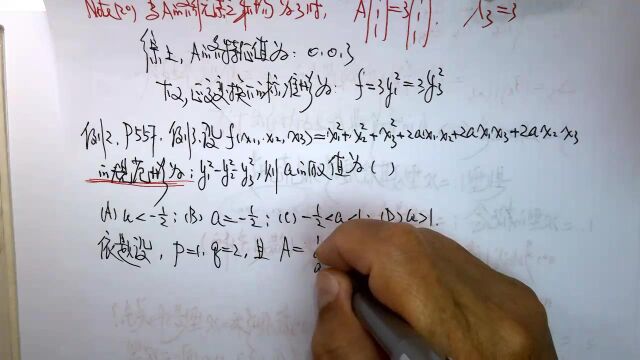 Note(2) 当A的各行元素之和均为3时, A(1 1 1) = 3(1 1 1). λ₃=3
综上, A的各特征值为: 0.0.3
故, 正交变换下标准形为 f=3y₁²=3y₃²
例12. P557. 例3. 设 f(x₁,x₂,x₃)=x₁²+x₂²+x₃²+2ax₁x₂+2ax₁x₃+2ax₂x₃
的规范形为: y₁²-y₂²-y₃², 则a的取值为( )
(A) a<-1/2; (B) a=-1/2; (C) -1/2<a<1; (D) a>1.
依题设, p=1, q=2, 且 A=